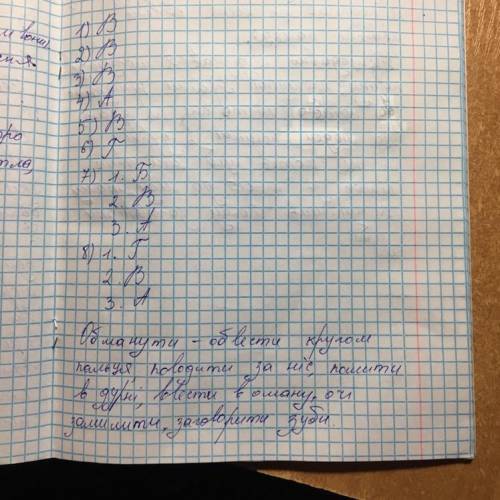 1) В
2) В
3) В
4) А
5) В
6) Г
7) 1. Б
2. В
3. А
8) 1. Г
2. В
3. А
Обманути - обвести кругом
пальця поводити за ніс, пошити
в дурні, ввести в оману, очі
замилити, заговорити зуби.